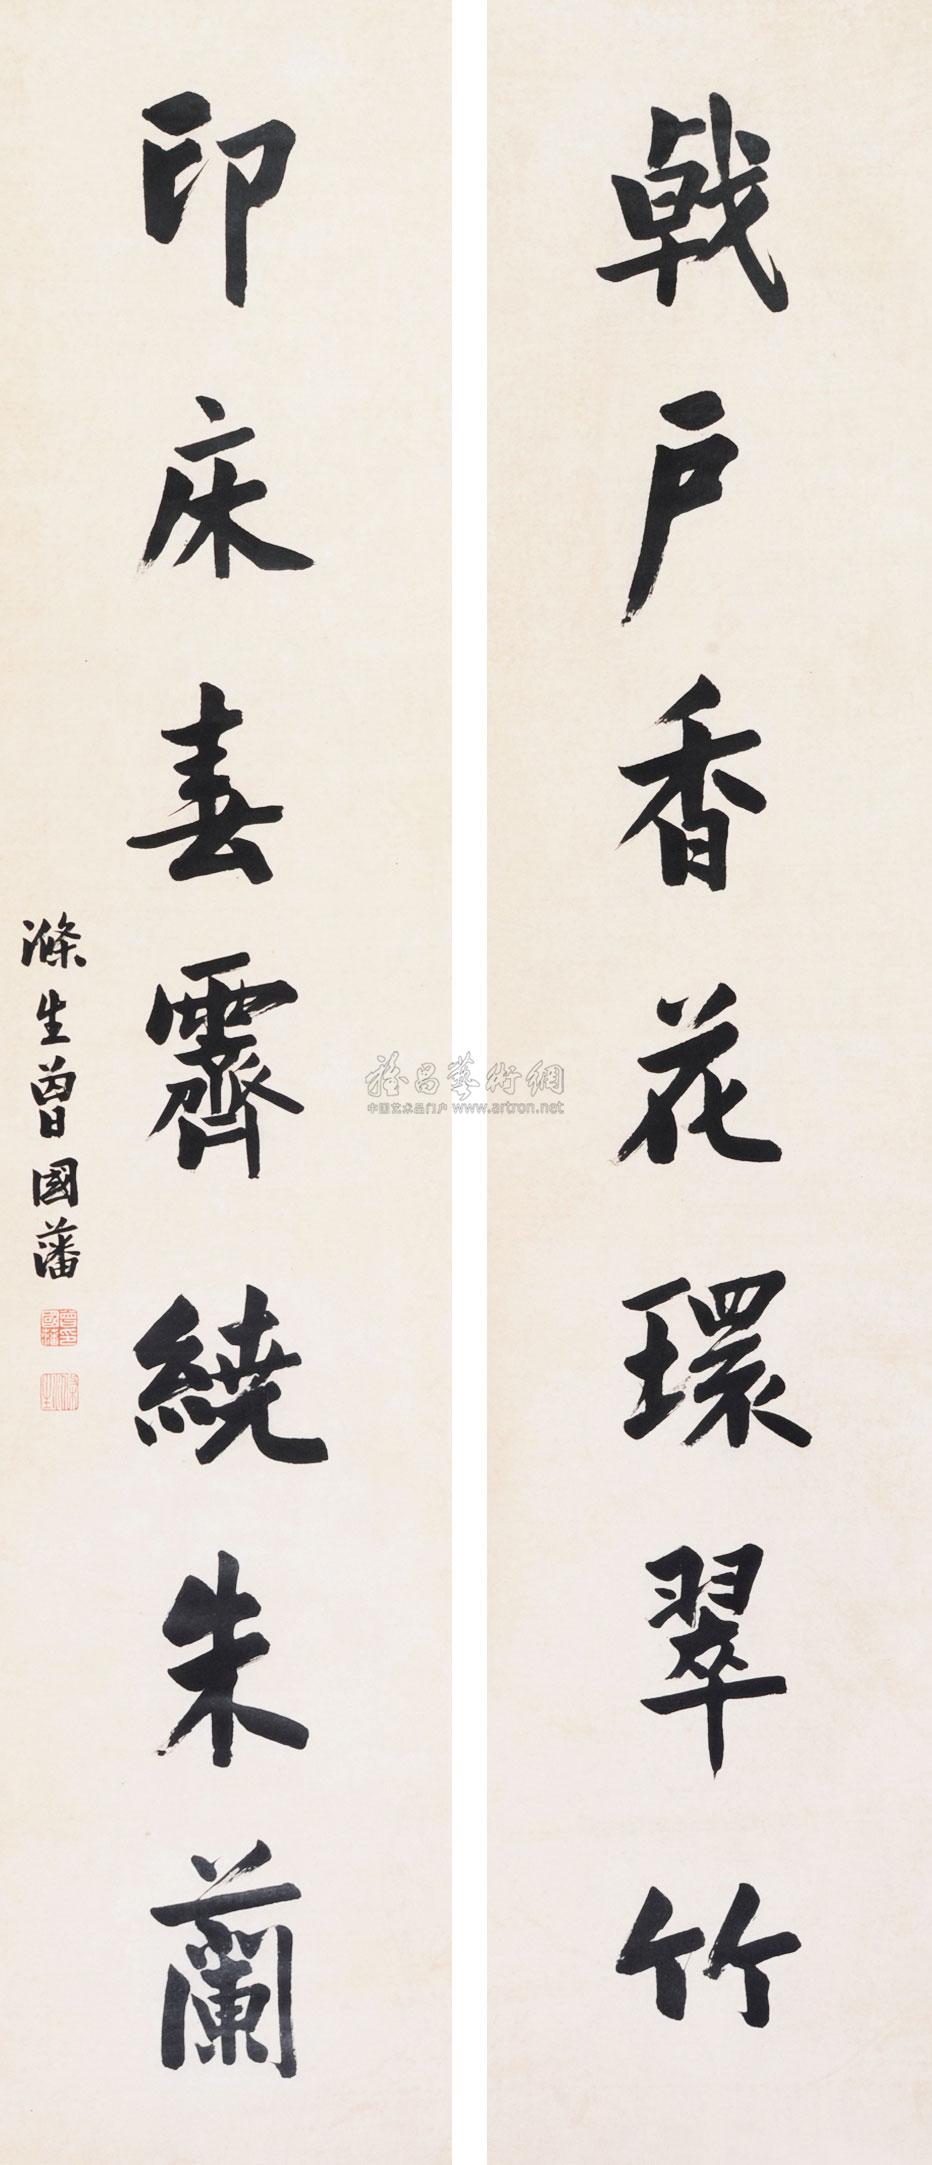 戟户香花環翠竹
印床喜霽繞朱蘭
滌生曾國藩
曾印國藩
滌生
雅昌藝術網
中国艺术品门户 www.artron.net